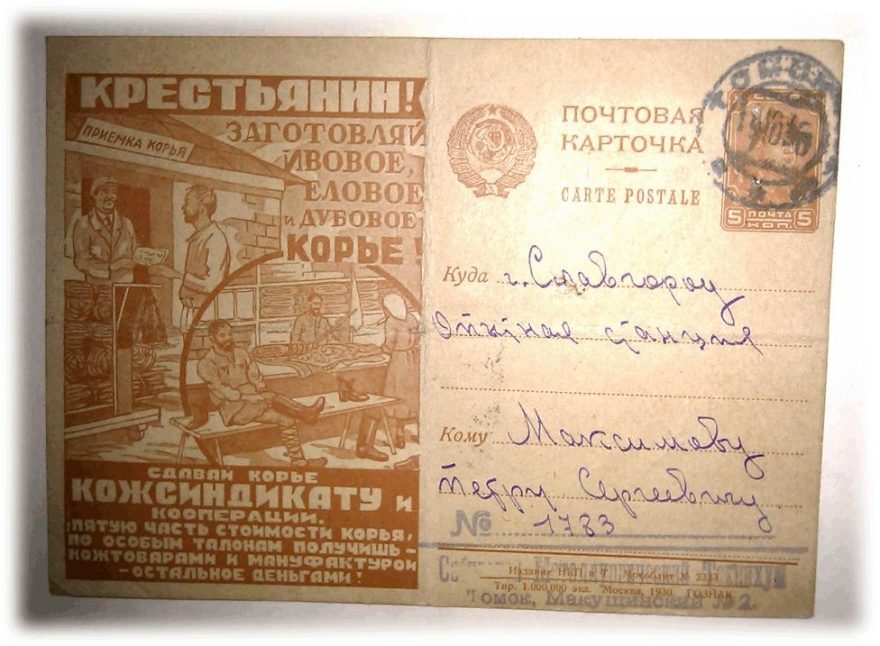 КРЕСТЬЯНИН!
ПРИЕМКА КОРЬЯ
ЗАГОТОВЛЯЙ
ИВОВОЕ,
ЕЛОВОЕ
и ДУБОВОЕ
КОРЬЕ!
СДАВАЙ КОРЬЕ
КОЖСИНДИКАТУ и
КООПЕРАЦИИ.
ПЯТУЮ ЧАСТЬ СТОИМОСТИ КОРЬЯ,
ПО ОСОБЫМ ТАЛОНАМ ПОЛУЧИШЬ –
КОЖТОВАРАМИ И МАНУФАКТУРОЙ
– ОСТАЛЬНОЕ ДЕНЬГАМИ!
ПОЧТОВАЯ
КАРТОЧКА
CARTE POSTALE
5 ПОЧТА 5
КОП.
Куда г. Славгород
Опытная станция
Кому Максимову
Петру Сергеевичу
№ 1733
Издание НКПТ Мособлит № 2323
Сибирский Металлургический Техникум
Тир. 1.000.000 экз. Москва, 1930. ГОЗНАК
Томск, Макушинский № 2.